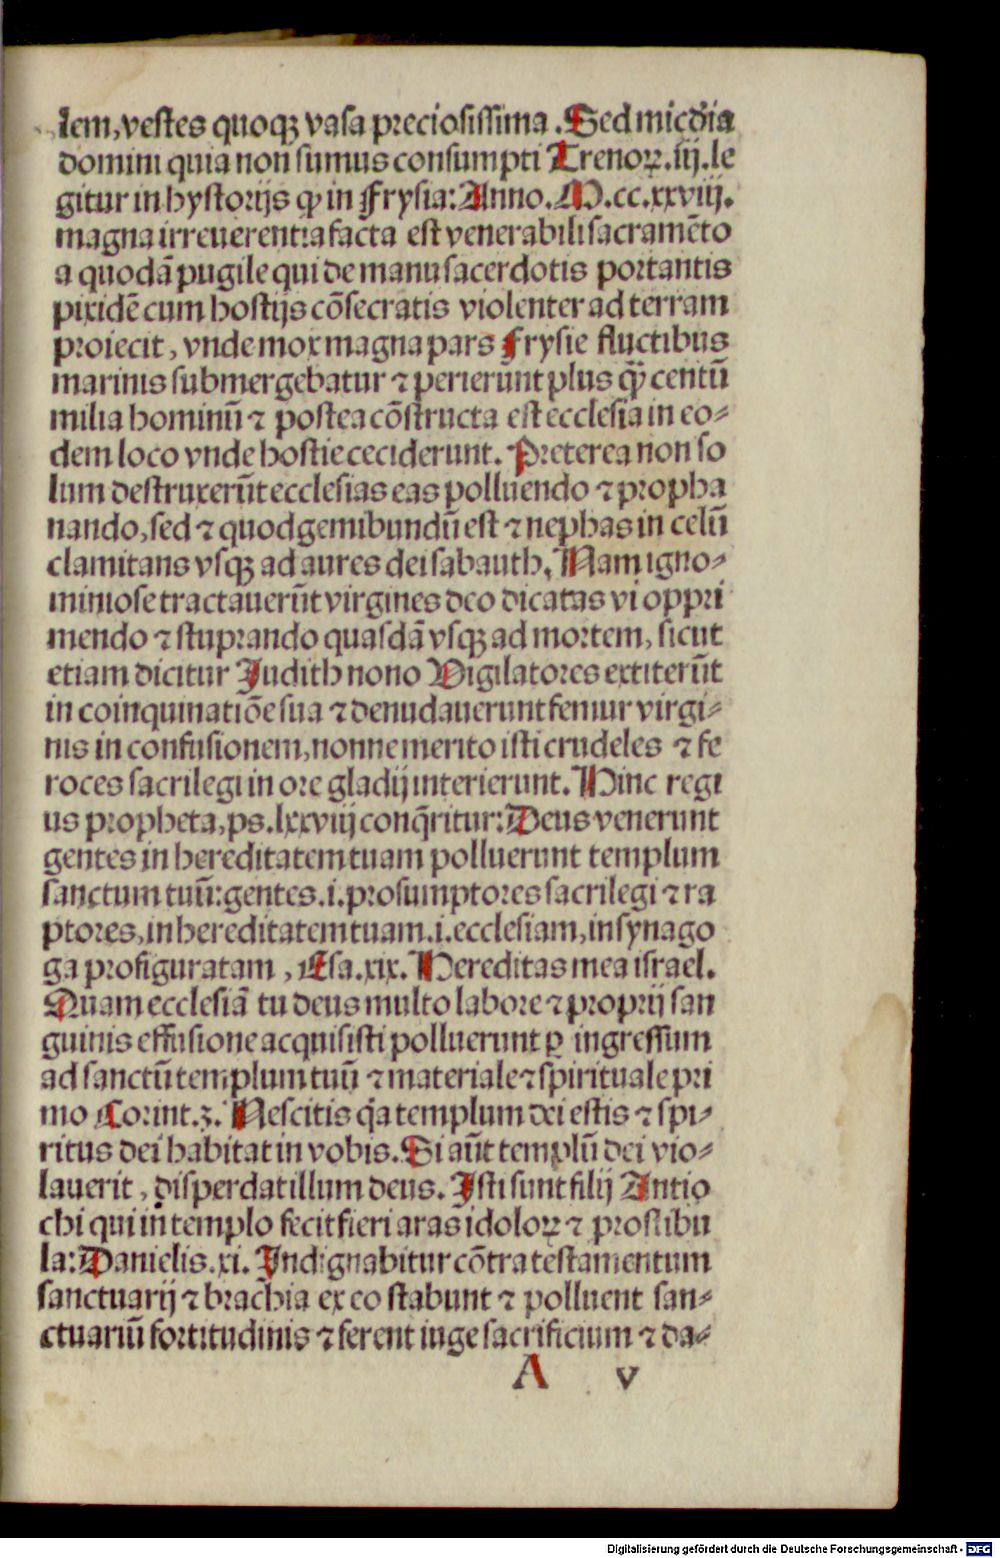 lem, vestes quoqꝫ vasa preciosissima. Sed mic̄dia
domini quia non sumus consumpti Trenoꝝ. iij. le
gitur in hystorijs ꝙ in Frysia: Anno. M.cc.xxviij.
magna irreuerentia facta est venerabili sacramēto
a quodā pugile qui de manu sacerdotis portantis
pixidē cum hostijs cōsecratis violenter ad terram
proiecit, vnde mox magna pars Frysie fluctibus
marinis submergebatur ⁊ perierunt plus q̈ȝ centū
milia hominū ⁊ postea cōstructa est ecclesia in eo⸗
dem loco vnde hostie ceciderunt. Preterea non so
lum destruxerūt ecclesias eas polluendo ⁊ propha
nando, sed ⁊ quod gemibundū est ⁊ nephas in celū
clamitans vsqꝫ ad aures dei sabauth, Nam igno⸗
miniose tractauerūt virgines deo dicatas vi oppri
mendo ⁊ stuprando quasdā vsqꝫ ad mortem, sicut
etiam dicitur Judith nono Vigilatores extiterūt
in coinquinatiōe sua ⁊ denudauerunt femur virgi⸗
nis in confusionem, nonne merito isti crudeles ⁊ fe
roces sacrilegi in ore gladij interierunt. Hinc regi
us propheta, ps. lxxviij conq̄ritur: Deus venerunt
gentes in hereditatem tuam polluerunt templum
sanctum tuū: gentes .i. prosumptores sacrilegi ⁊ ra
ptores, in hereditatem tuam .i. ecclesiam, in synago
ga profiguratam, Esa. xix. Hereditas mea israel.
Quam ecclesiā tu deus multo labore ⁊ proprij san
guinis effusione acquisisti polluerunt ꝑ ingressum
ad sanctū templum tuū ⁊ materiale ⁊ spirituale pri
mo Corint. 3. Nescitis q̄a templum dei estis ⁊ spi⸗
ritus dei habitat in vobis. Si aūt templū dei vio⸗
lauerit, disperdat illum deus. Isti sunt filij Antio
chi qui in templo fecit fieri aras idoloꝝ ⁊ prostibu
la: Danielis. xi. Indignabitur cōtra testamentum
sanctuarij ⁊ brachia ex eo stabunt ⁊ polluent san⸗
ctuariū fortitudinis ⁊ ferent iuge sacrificium ⁊ da⸗
A v
Digitalisierung gefördert durch die Deutsche Forschungsgemeinschaft - DFG